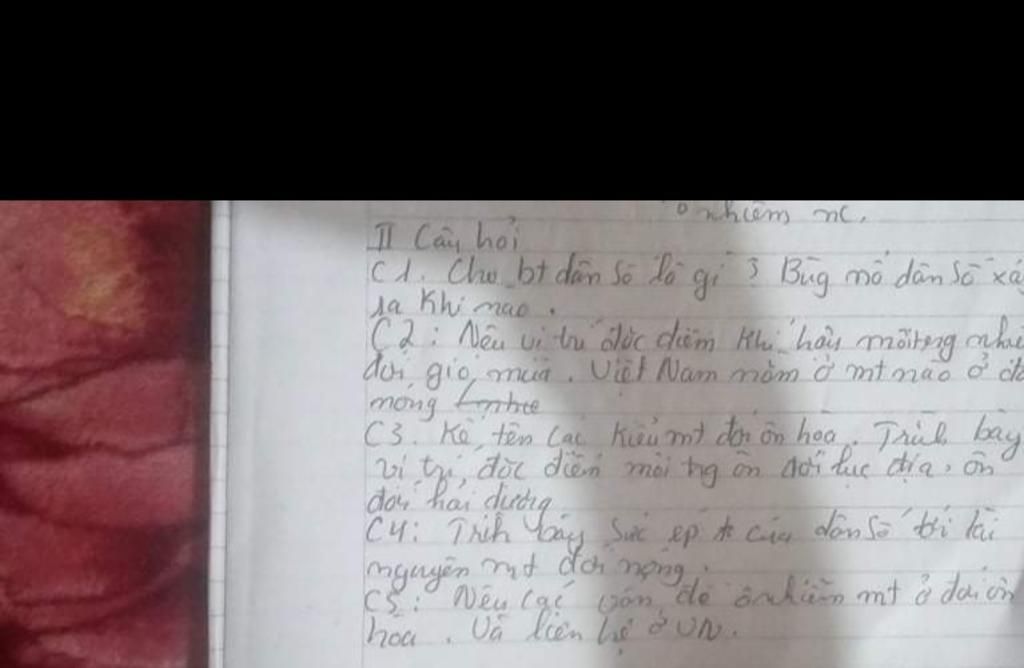 ô nhiêm nc.
II Câu hỏi
C1. Cho bt dân số là gì? Bùg nổ dân số xảy
ra khi nao.
C2: Nêu vị trí đặc điểm khí hậu môi trg nhiệ
đới gió mùa. Việt Nam nằm ở mt nào ở đớ
nóng
C3. Kể tên các kiểu mt đới ôn hòa. Trình bày
vị trí, đặc điểm môi trg ôn đới lục địa, ôn
đới hải dương
C4: Trình bày sức ép của dân số tới tài
nguyên mt đới nóng.
C5: Nêu các vấn đề ô nhiễm mt ở đới ôn
hòa. Và liên hệ ở VN.